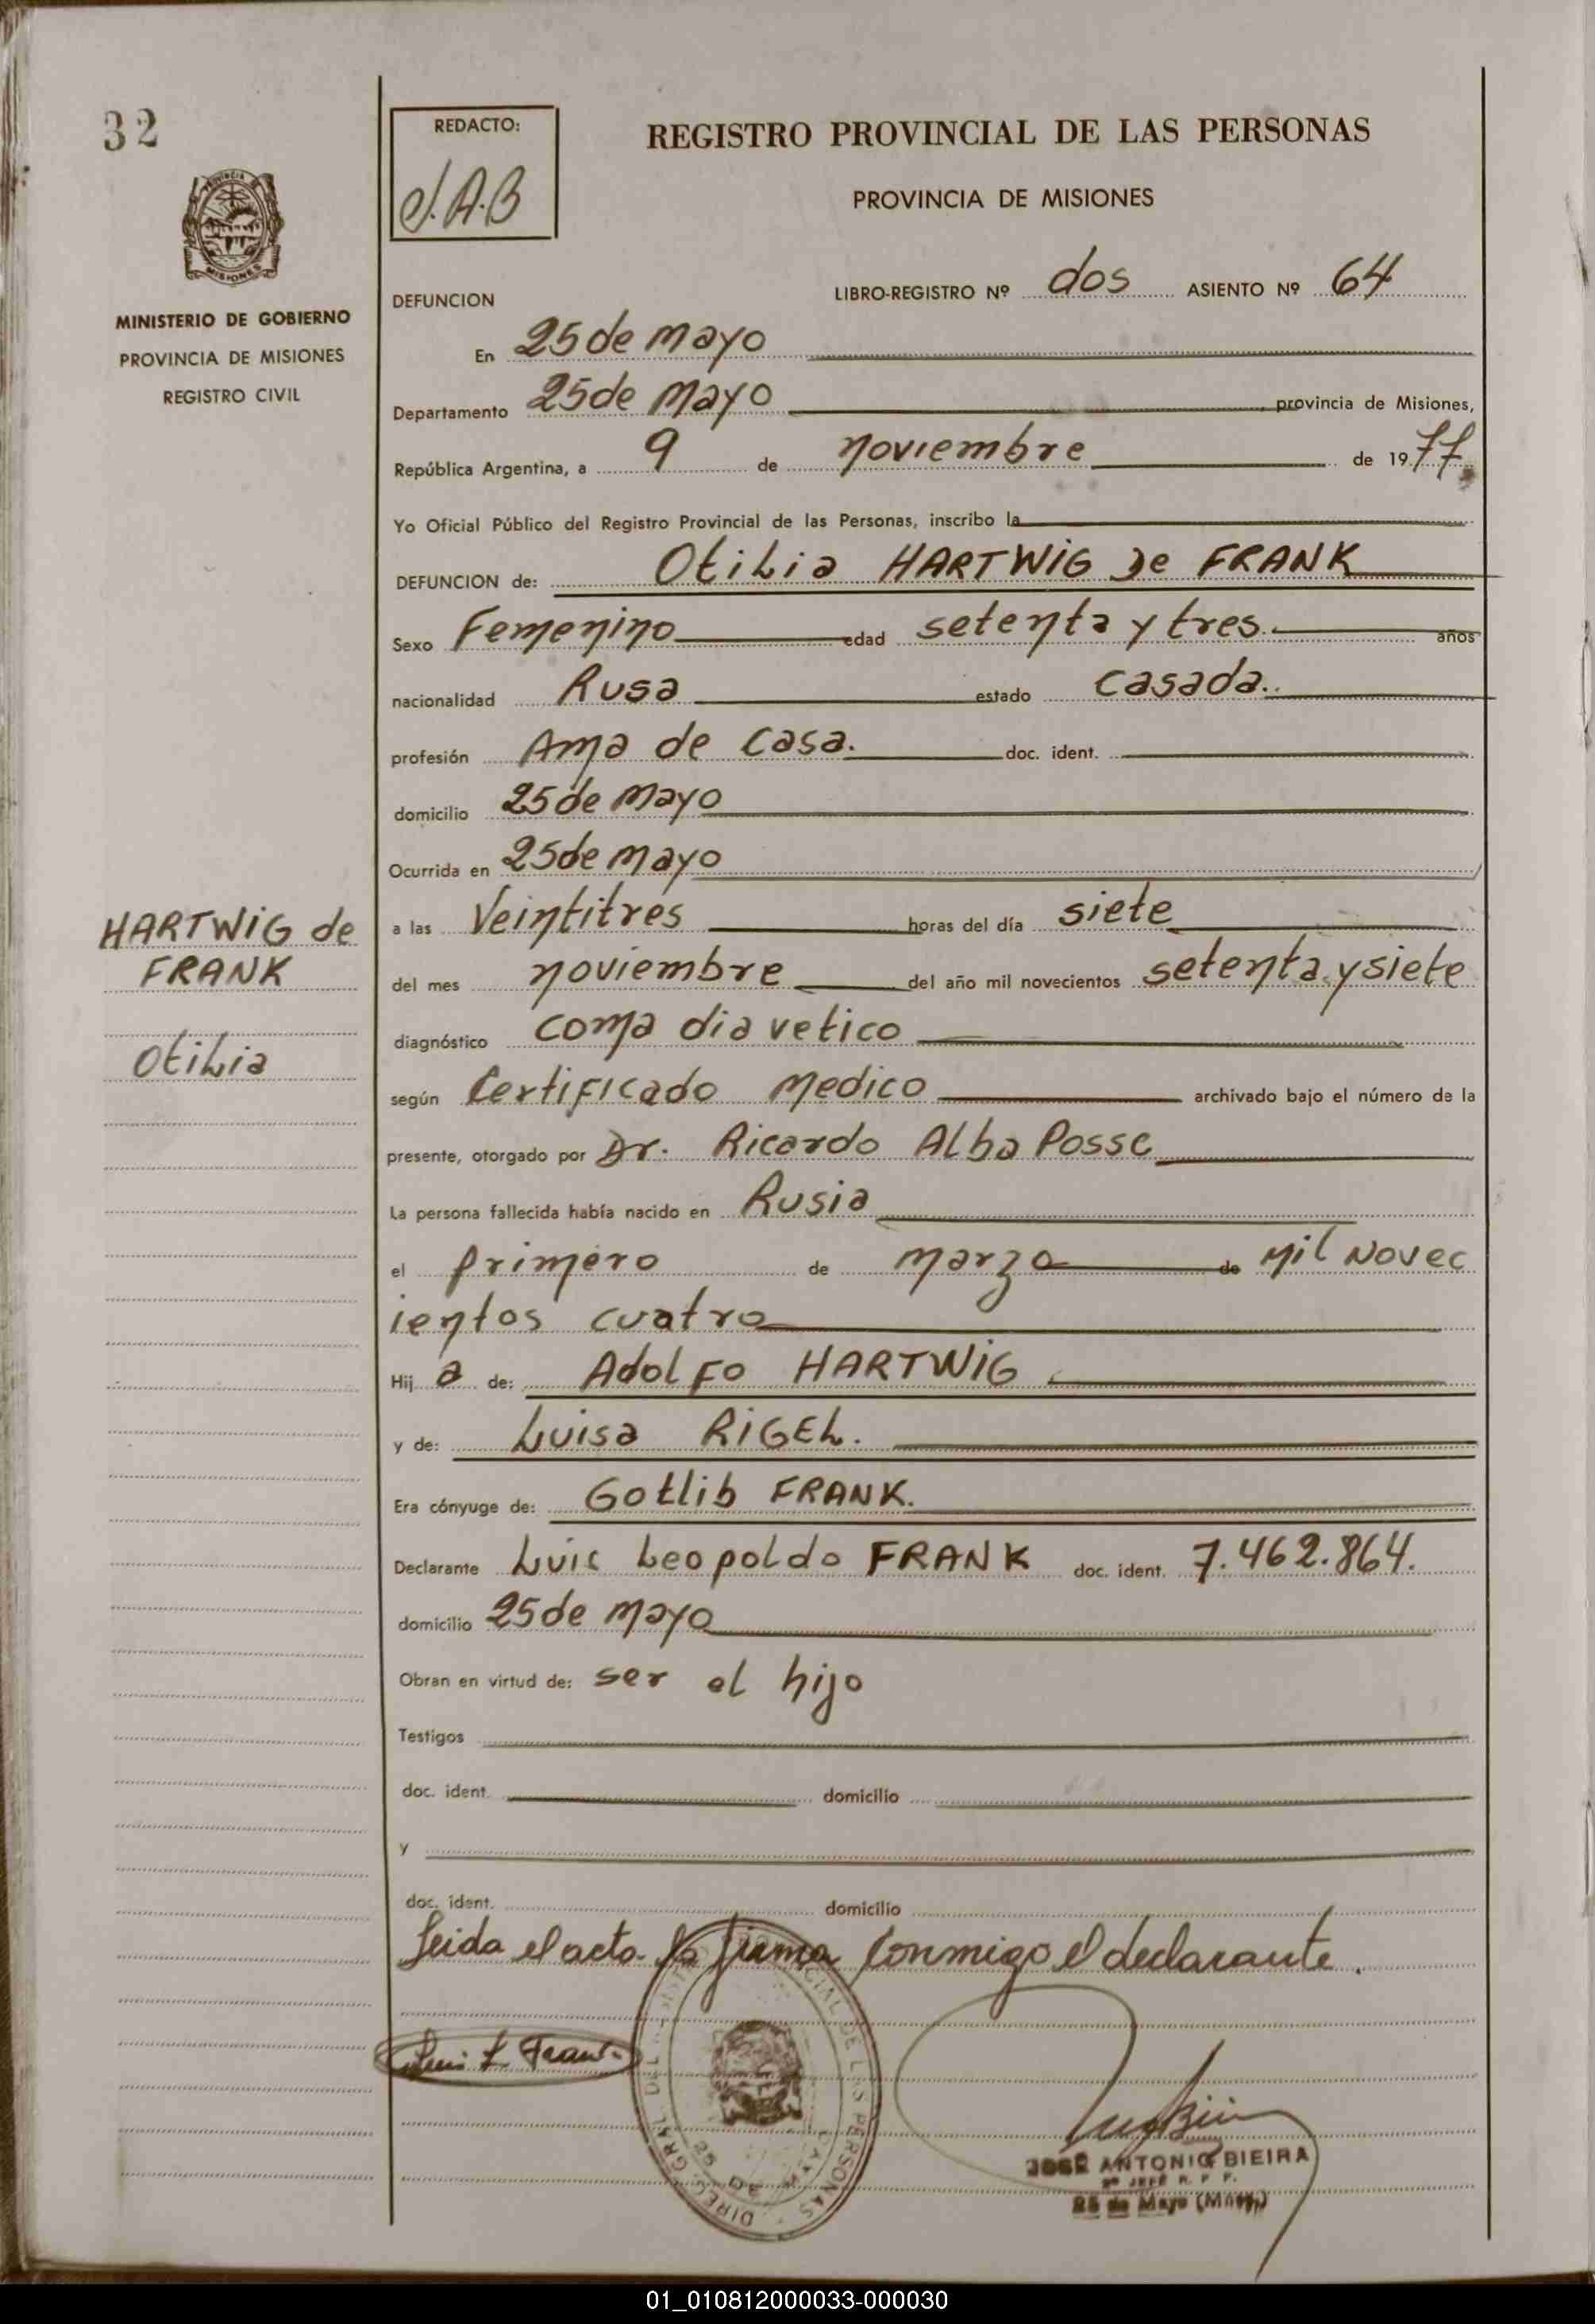 32
REDACTO:
J.A.B
REGISTRO PROVINCIAL DE LAS PERSONAS
PROVINCIA DE MISIONES
PROVINCIA
MISIONES
MINISTERIO DE GOBIERNO
PROVINCIA DE MISIONES
REGISTRO CIVIL
DEFUNCION
LIBRO-REGISTRO Nº dos ASIENTO Nº 64
En 25 de mayo
Departamento 25 de mayo provincia de Misiones,
República Argentina, a 9 de noviembre de 1977
Yo Oficial Público del Registro Provincial de las Personas, inscribo la
DEFUNCION de: Otilia HARTWIG de FRANK
Sexo Femenino edad setenta y tres. años
nacionalidad Rusa estado Casada.
profesión Ama de casa. doc. ident.
domicilio 25 de mayo
Ocurrida en 25 de mayo
HARTWIG de
FRANK
Otilia
a las Veintitres horas del día siete
del mes noviembre del año mil novecientos setenta y siete
diagnóstico coma dia vetico
según Certificado medico archivado bajo el número de la
presente, otorgado por Dr. Ricardo Alba Posse
La persona fallecida había nacido en Rusia
el primero de marzo de mil novec
ientos cuatro
Hij a de: Adolfo HARTWIG
y de: Luisa RIGEL.
Era cónyuge de: Gotlib FRANK.
Declarante Luis Leopoldo FRANK doc. ident. 7.462.864.
domicilio 25 de mayo
Obran en virtud de: ser el hijo
Testigos
doc. ident. domicilio
y
doc. ident. domicilio
Leida el acta la firma conmigo el declarante.
Luis L Frank
DIREC. GRAL. DEL PERSONAS
25 DE MAYO
JOSE ANTONIO BIEIRA
25 de Mayo (Mnes.)
01_010812000033-000030